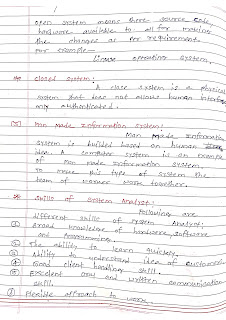 open system means there source code,
hardware available to all for making
the changes as per requirement
For example—
Linux operating system.
* closed system:
A close system is a physical
system that has not allows human interface
only authenticated.
(5) Man made Information system:
Man made information
system is builded based on human
idea. A computer system is an example
of man made information system.
To make this type of system the
team of worker work together.
* Skills of System Analyst:
Following are
different skills of system Analyst:
① Broad knowledge of hardware, software
and programming.
② The ability to learn quickly.
③ Ability to understand idea of customer
④ Good client handling skill.
⑤ Excellent oral and written communication
skill.
⑥ Flexible approach to work.